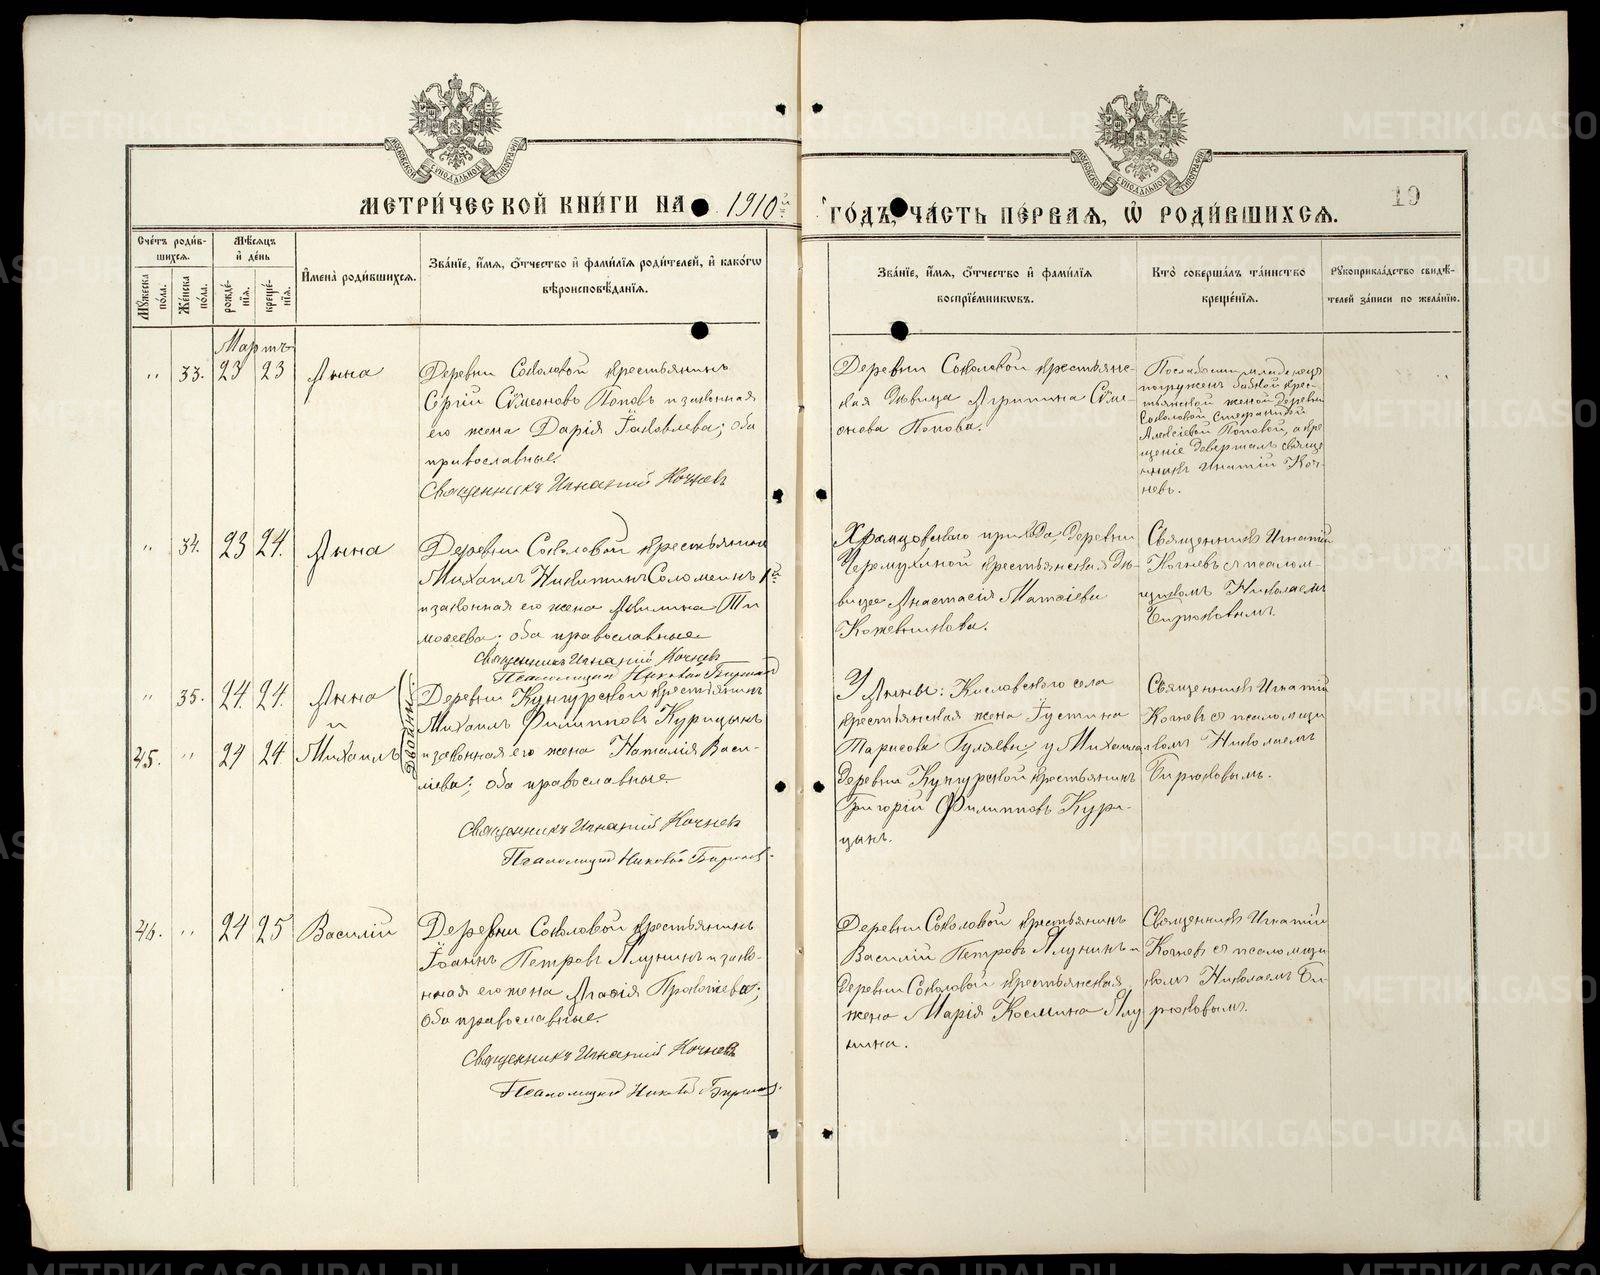 МЕТРИ́ЧЕСКОЙ КНИ́ГИ НА 1910й
ГО́ДЪ, ЧА́СТЬ ПЕ́РВАЯ, Ѡ҆ РОДИ́ВШИХСЯ.
19
Сче́тъ роди́в-
шихся.
Мѣ́сяцъ
и҆ де́нь
Мꙋ́жеска
по́ла.
Же́нска
по́ла.
рожде́-
нїя.
креще́-
нїя.
И҆мена̀ роди́вшихся.
Зва́нїе, и҆́мя, ѻ҆́тчество и҆ фами́лїя роди́телей, и҆ како́гѡ
вѣроисповѣ́данїя.
Зва́нїе, и҆́мя, ѻ҆́тчество и҆ фами́лїя
воспрїе́мникѡвъ.
Кто̀ соверша́лъ та́инство
креще́нїя.
Рꙋкоприкла́дство свидѣ́-
телей за́писи по жела́нїю.
Мартъ
" 33. 23 23 Анна
Деревни Соколовой крестьянинъ
Сергій Сѵмеоновъ Поповъ и законная
его жена Дарія Іаковлева; оба
православные.
Священникъ Игнатій Кочневъ
Деревни Соколовой крестьянс-
кая дѣвица Агрипина Сѵме-
онова Попова.
По слабости младенецъ
погруженъ бабкой крес-
тьянской женой деревни
Соколовой Стефанидой
Алексіевой Поповой, а кре
щеніе довершалъ священ
никъ Игнатій Коч-
невъ.
" 34. 23 24. Анна
Деревни Соколовой крестьянинъ
Михаилъ Никитинъ Соломеинъ 1й
и законная его жена Акилина Ти
мофеева; оба православные
Священникъ Игнатій Кочневъ
Псаломщикъ Николай Бирюковъ
Храмцовскаго прихода, деревни
Черемухиной крестьянская дѣ-
вица Анастасія Матѳіева
Кожевникова.
Священникъ Игнатій
Кочневъ съ псалом-
щикомъ Николаемъ
Бирюковымъ.
" 35. 24. 24. Анна
и
45. " 24 24 Михаилъ
Двойни
Деревни Кунгурской крестьянинъ
Михаилъ Филипповъ Курицынъ
и законная его жена Наталія Васи-
ліева; оба православные
Священникъ Игнатій Кочневъ
Псаломщикъ Николай Бирюковъ
У Анны: Кисловского села
крестьянская жена Іустина
Тарасова Гуляева, у Михаила
деревни Кунгурской крестьянинъ
Григорій Филипповъ Кури-
цынъ.
Священникъ Игнатій
Кочневъ съ псаломщи
комъ Николаемъ
Бирюковымъ.
46. " 24 25 Василій
Деревни Соколовой крестьянинъ
Іоаннъ Петровъ Лунинъ и зако-
нная его жена Агафія Прокопіева;
оба православные.
Священникъ Игнатій Кочневъ
Псаломщикъ Николай Бирюковъ
Деревни Соколовой крестьянинъ
Василій Петровъ Лунинъ и
деревни Соколовой крестьянская
жена Марія Космина Лу
нина.
Священникъ Игнатій
Кочневъ съ псаломщи
комъ Николаемъ Би
рюковымъ.
METRIKI.GASO-URAL.RU